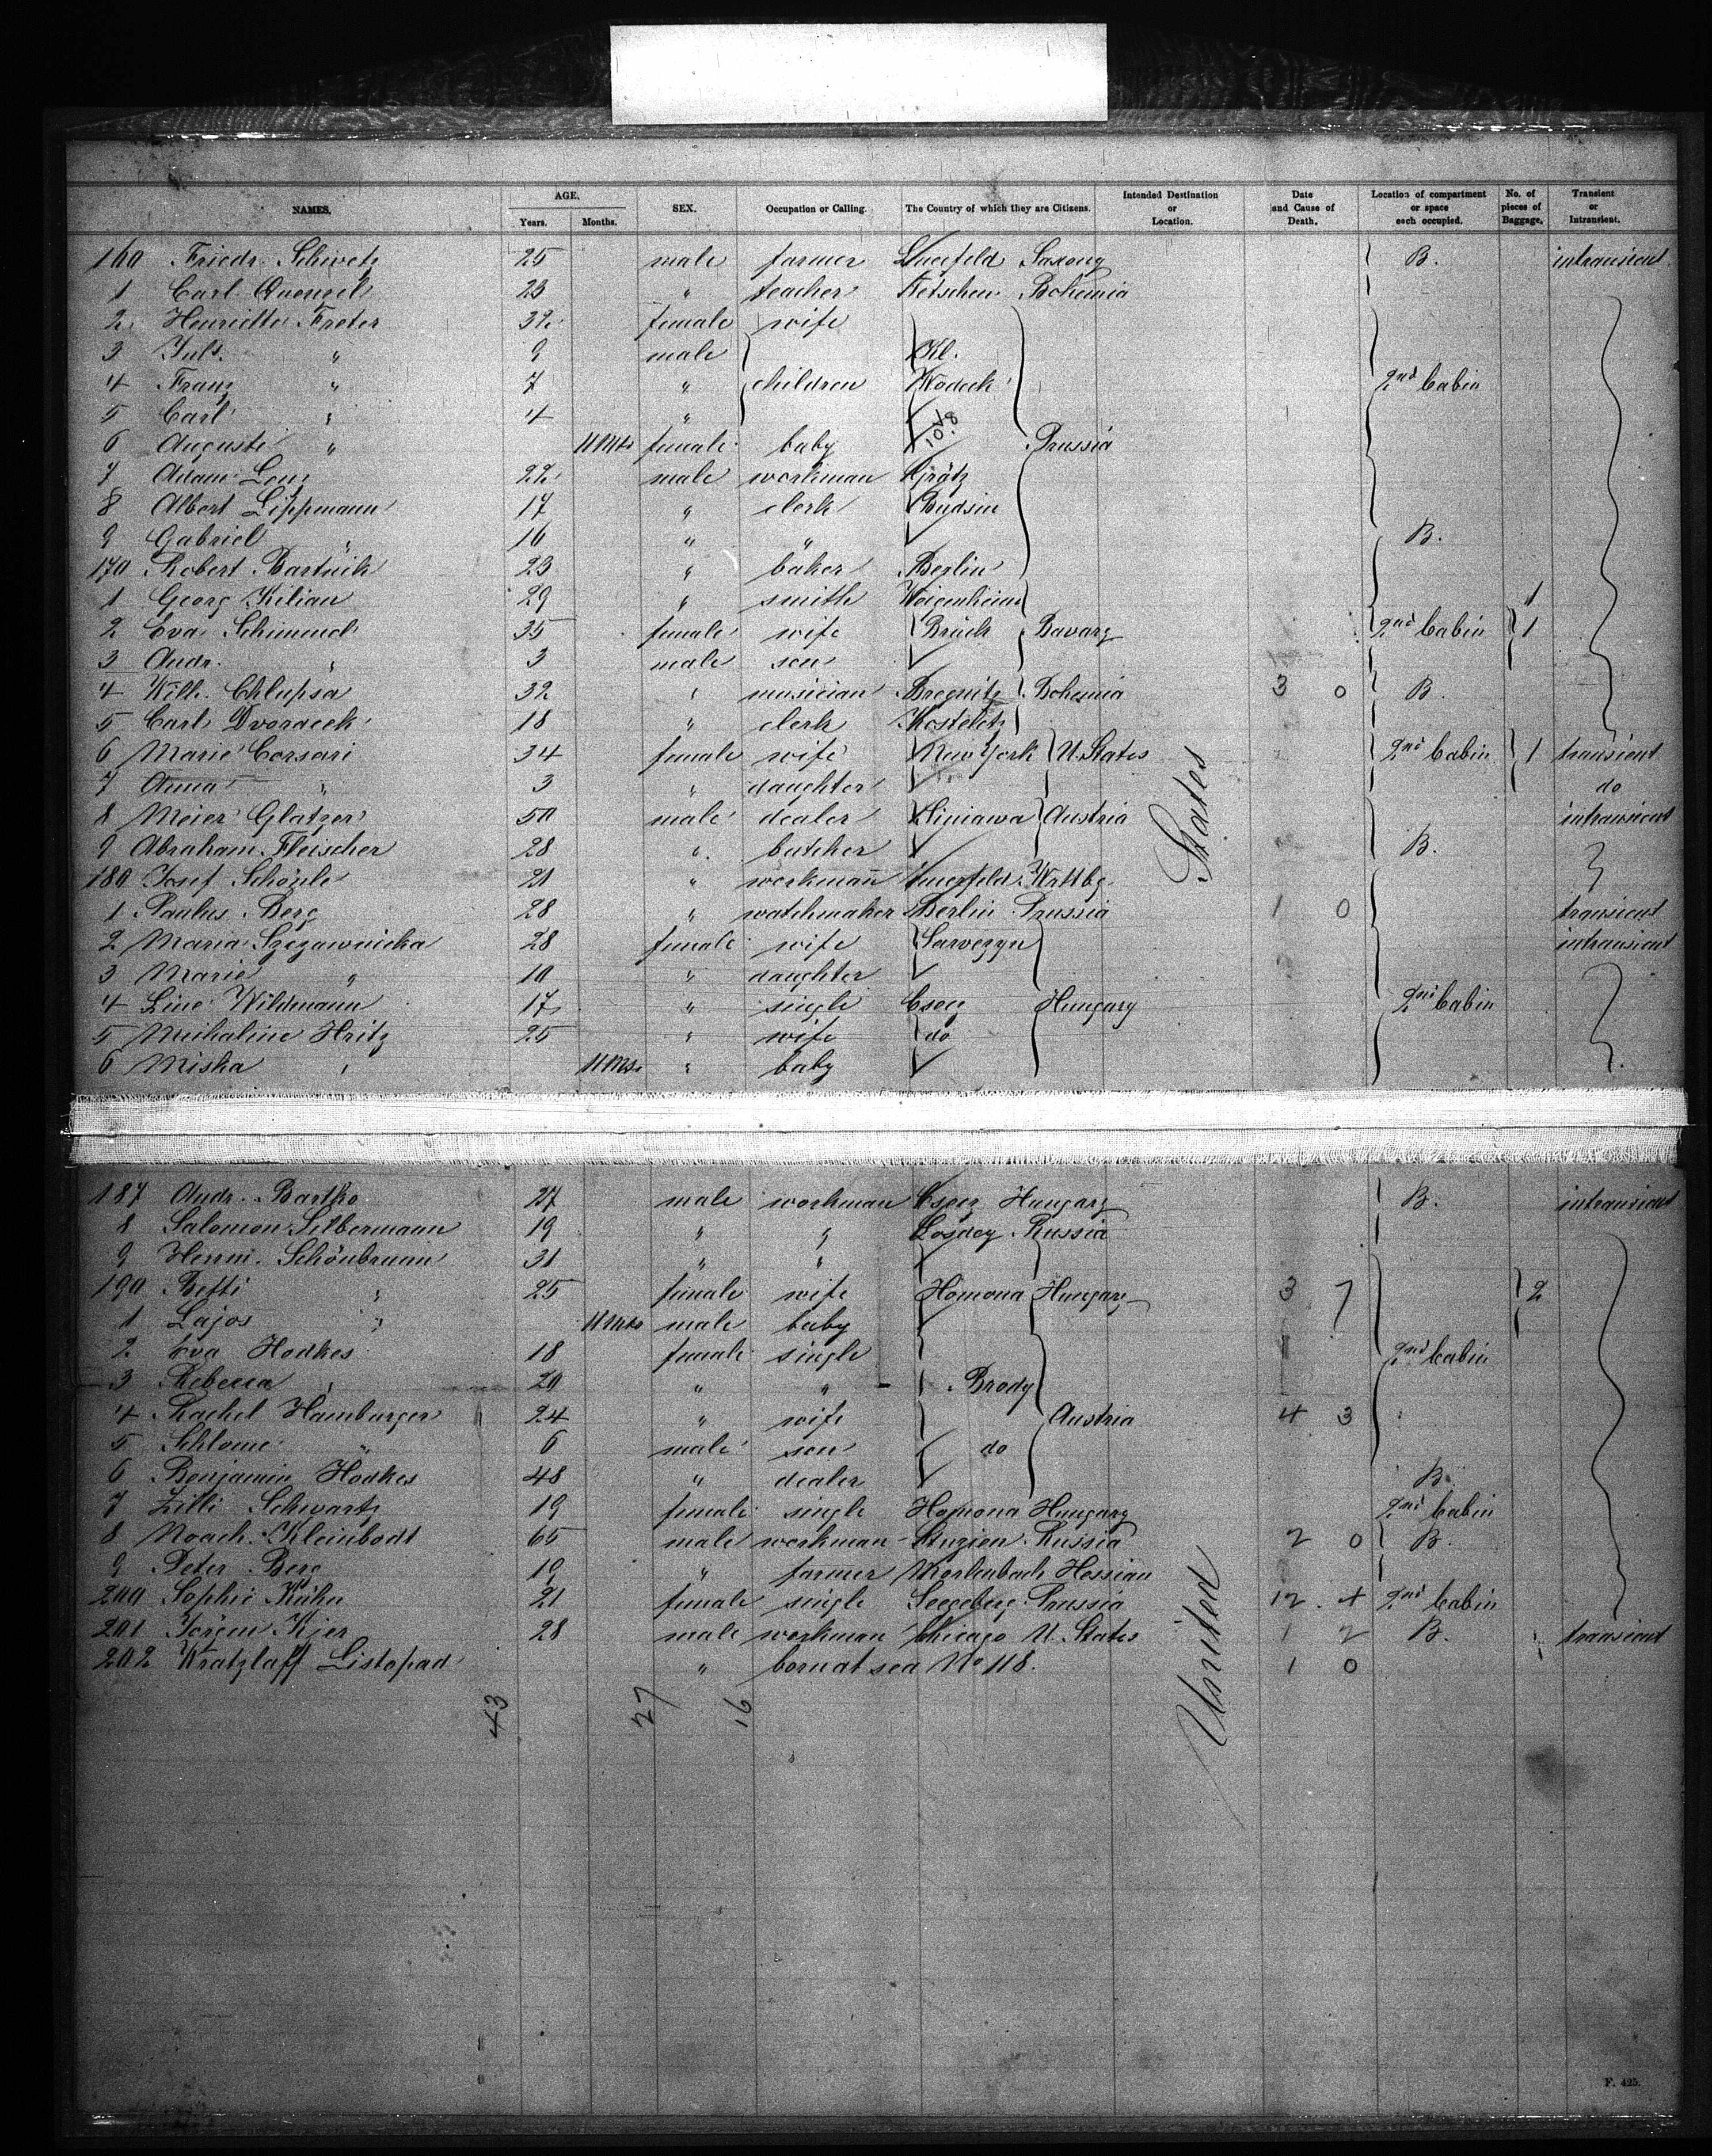 NAMES. AGE. Years. Months. SEX. Occupation or Calling. The Country of which they are Citizens. Intended Destination or Location. Date and Cause of Death. Location of compartment or space each occupied. No. of pieces of Baggage. Transient or Intransient.
160 Friedr. Schwetz 25 male farmer Saxony B. intransient
1 Carl 23 " teacher Tetschen Bohemia
2 Henriette Freter 32 female wife
3 Juls. " 9 male Kl.
4 Franz " 7 " children Wodeck 2nd Cabin
5 Carl " 4 "
6 Auguste " 11 Mts female baby Prussia
7 Adam Lenz 22 male workman Grätz
8 Albert Lippmann 17 " clerk Budsin
9 Gabriel " 16 " " B.
170 Robert Bartnik 23 " baker Berlin
1 Georg Kilian 29 " smith Weigenheim 1
2 Eva Schimmel 35 female wife Brück Bavary 2nd Cabin 1
3 Andr. " 3 male son
4 Wilh. Chlupsa 32 " musician Bregnitz Bohemia 3 0 B.
5 Carl Dvoracek 18 " clerk Kosteletz
6 Marie Corsari 34 female wife New York U. States 2nd Cabin 1 transient
7 Anna " 3 " daughter do
8 Meier Glatzer 50 male dealer Austria intransient
9 Abraham Fleischer 28 " butcher B.
180 Josef Schönle 21 " workman Wrttbg. States
1 Paulus Berg 28 " watchmaker Berlin Prussia 1 0 transient
2 Maria Szczawnicka 28 female wife intransient
3 Marie " 10 " daughter
4 Line Wildmann 17 " single Hungary 2nd Cabin
5 Michaline Hritz 25 " wife do
6 Miska " 11 Mts. " baby
187 Andr. Bartko 27 male workman Hungary B. intransient
8 Salomon Silbermann 19 " " Russia
9 Herm. Schönbrunn 31 " "
190 Betti " 25 female wife Homona Hungary 3 7 2
1 Lajos " 11 Mts male baby
2 Eva Hodkes 18 female single 2nd Cabin
3 Rebecca " 20 " " Brody
4 Rachel Hamburger 24 " wife Austria 4 3
5 Schlome " 6 male son do
6 Benjamin Hodkes 48 " dealer B.
7 Zilli Schwartz 19 female single Homona Hungary 2nd Cabin
8 Noach Kleinbodt 65 male workman Russia 2 0 B.
9 Peter Berg 19 " farmer Morlenbach Hessian
200 Sophie Kühn 21 female single Seegeberg Prussia 12 4 2nd Cabin
201 Jörgen Kjer 28 male workman Chicago U. States 1 2 B. transient
202 Wratzlaff Listopad " born at sea No 118. 1 0
43 27 16 United
F. 425.